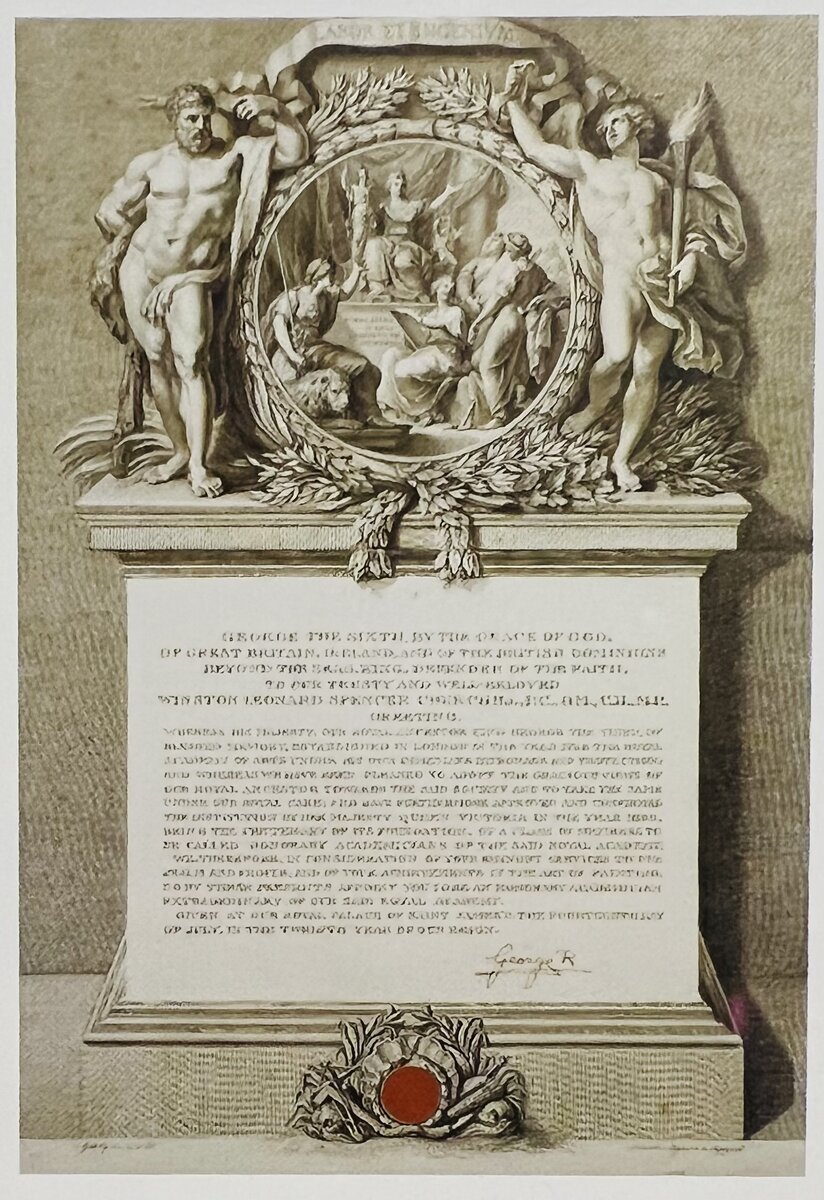 LABOR ET INGENIUM
GEORGE THE SIXTH, BY THE GRACE OF GOD,
OF GREAT BRITAIN, IRELAND, AND OF THE BRITISH DOMINIONS
BEYOND THE SEAS, KING, DEFENDER OF THE FAITH,
TO OUR TRUSTY AND WELL-BELOVED
WINSTON LEONARD SPENCER CHURCHILL, P.C., O.M., C.H., M.P.
GREETING.
WHEREAS HIS MAJESTY, OUR ROYAL ANCESTOR KING GEORGE THE THIRD, OF
BLESSED MEMORY, ESTABLISHED IN LONDON IN THE YEAR 1768 THE ROYAL
ACADEMY OF ARTS UNDER HIS OWN IMMEDIATE PATRONAGE AND PROTECTION;
AND WHEREAS WE HAVE BEEN PLEASED TO ADOPT THE GRACIOUS VIEWS OF
OUR ROYAL ANCESTOR TOWARDS THE SAID SOCIETY AND TO TAKE THE SAME
UNDER OUR ROYAL CARE; AND HAVE FURTHERMORE APPROVED AND
THE INSTITUTION BY HER MAJESTY QUEEN VICTORIA IN THE YEAR
BEING THE CENTENARY OF ITS FOUNDATION, OF A CLASS OF MEMBERS TO
BE CALLED HONORARY ACADEMICIANS OF THE SAID ROYAL ACADEMY.
WE, THEREFORE, IN CONSIDERATION OF YOUR EMINENT SERVICES TO OUR
REALM AND PEOPLE, AND OF YOUR ACHIEVEMENTS IN THE ART OF PAINTING,
DO BY THESE PRESENTS APPOINT YOU TO BE AN HONORARY ACADEMICIAN
EXTRAORDINARY OF OUR SAID ROYAL ACADEMY.
GIVEN AT OUR ROYAL PALACE OF SAINT JAMES'S THE FOURTEENTH DAY
OF JULY, IN THE TWELFTH YEAR OF OUR REIGN.
George R